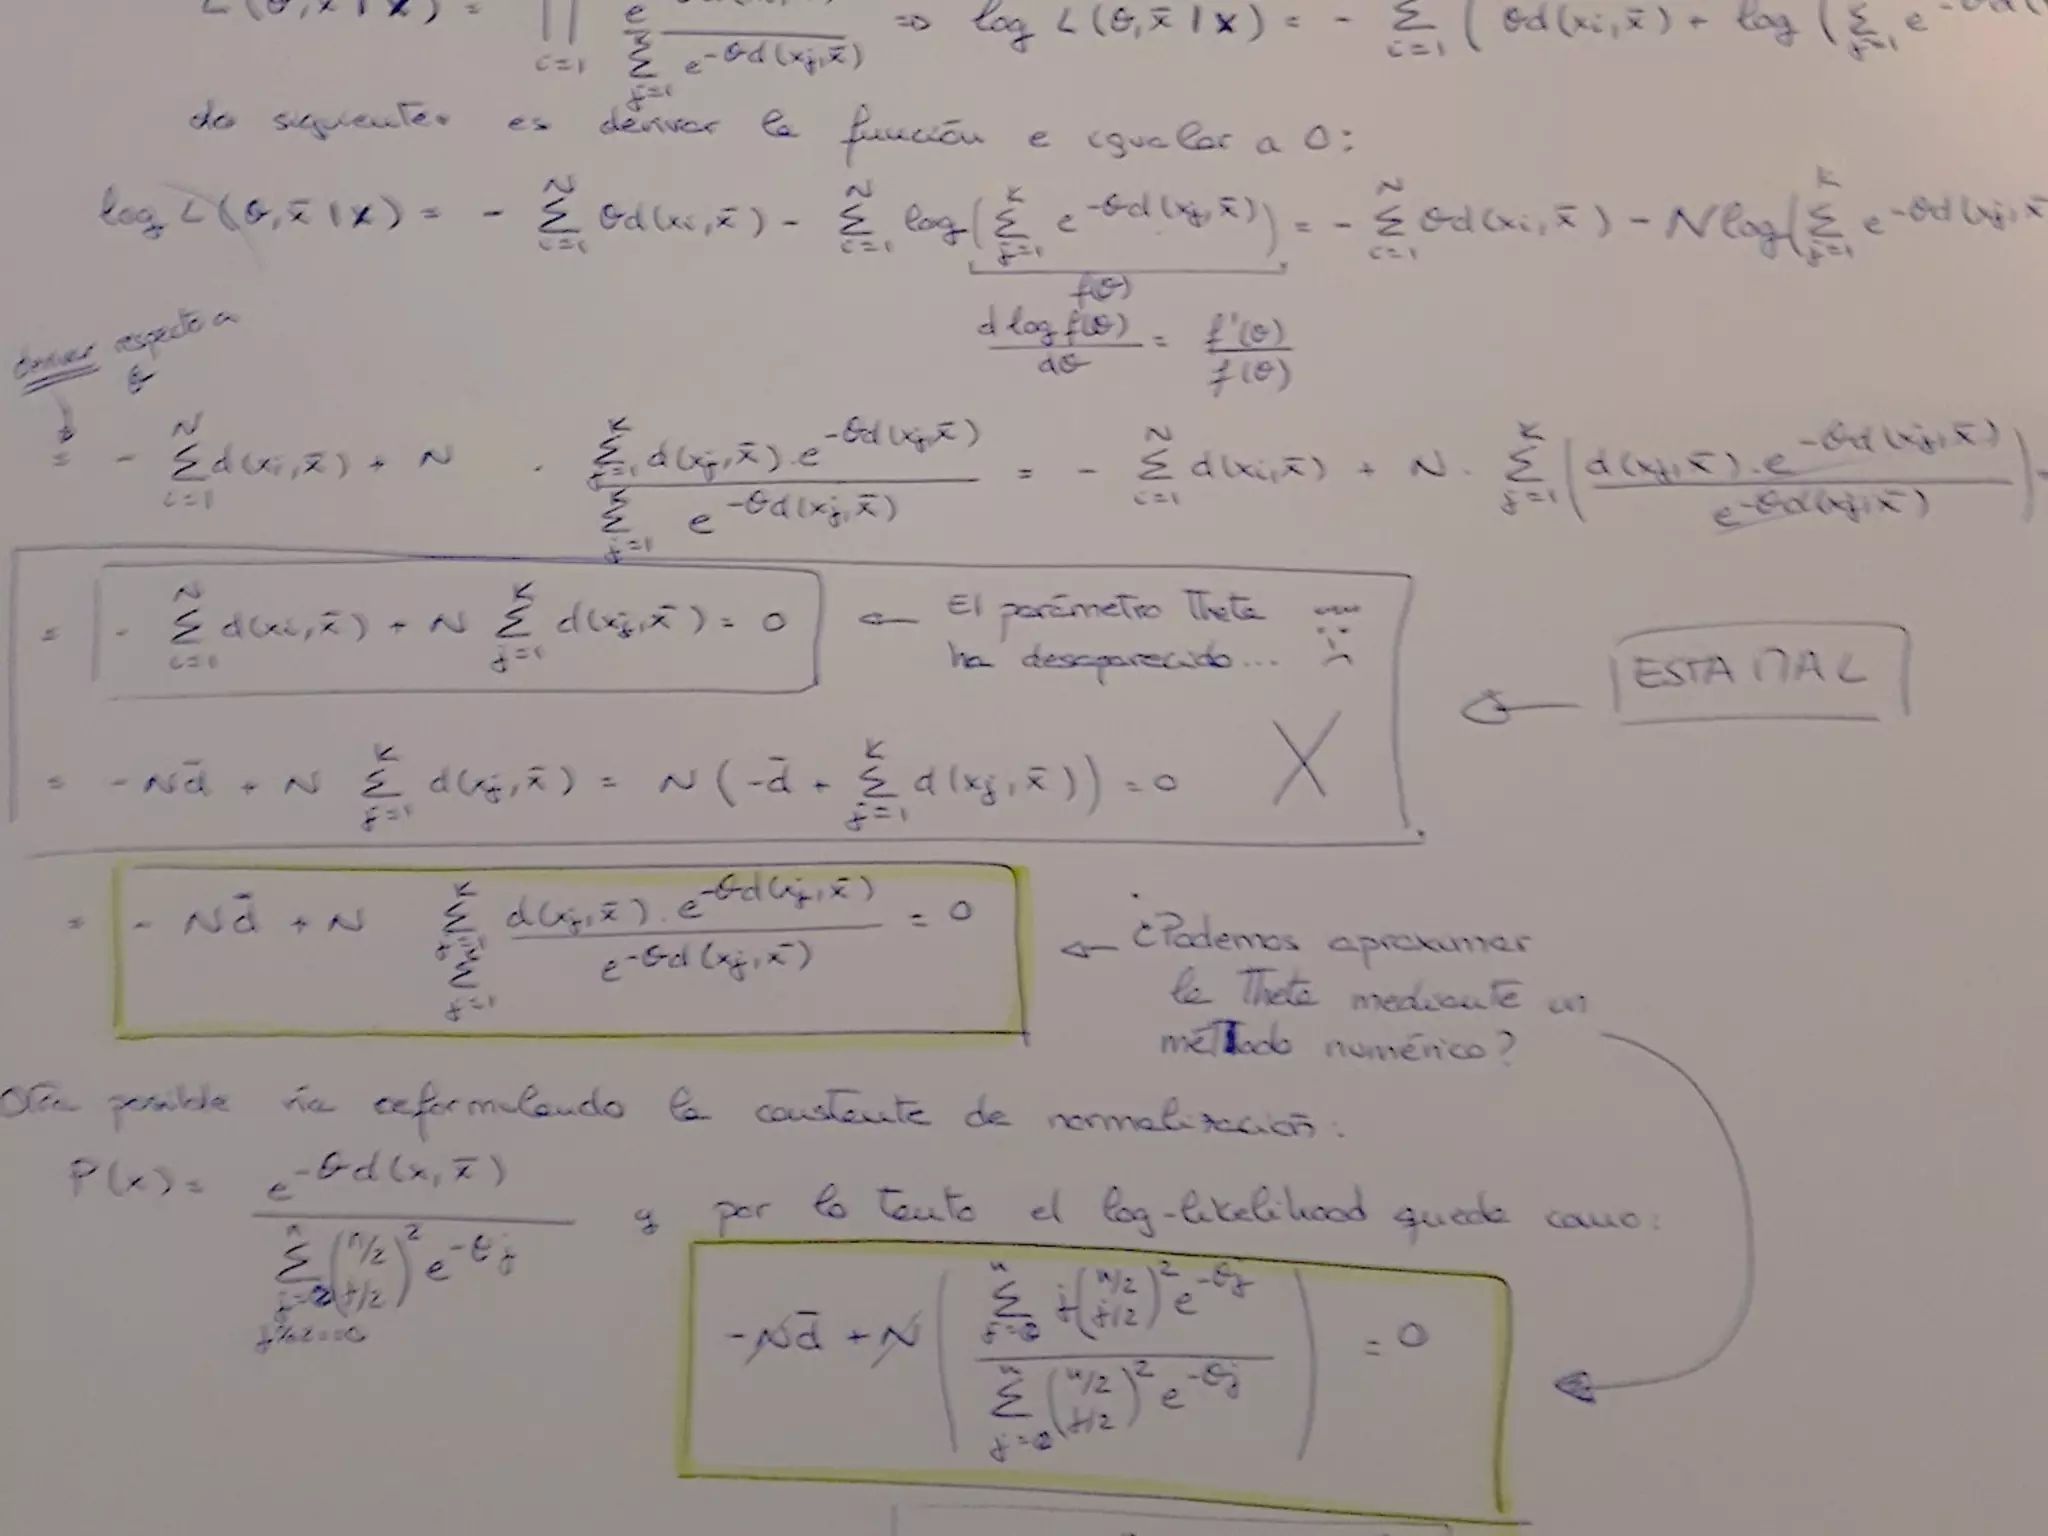 L(θ, x̄ | x) = ∏_{i=1} e / ∑_{j=1}^{k} e^{-θd(xj, x̄)} => log L(θ, x̄ | x) = - ∑_{i=1} ( θd(xi, x̄) + log ( ∑_{j=1} e^{-θd(
Lo siguiente es derivar la función e igualar a 0:
log L(θ, x̄ | x) = - ∑_{i=1}^{N} θd(xi, x̄) - ∑_{i=1}^{N} log( ∑_{j=1}^{k} e^{-θd(xj, x̄)} ) = - ∑_{i=1}^{N} θd(xi, x̄) - N log( ∑_{j=1}^{k} e^{-θd(xj, x̄
f(θ)
d log f(θ) / dθ = f'(θ) / f(θ)
derivar respecto a
θ
= - ∑_{i=1}^{N} d(xi, x̄) + N · ∑_{j=1}^{k} d(xj, x̄) · e^{-θd(xj, x̄)} / ∑_{j=1}^{k} e^{-θd(xj, x̄)} = - ∑_{i=1}^{N} d(xi, x̄) + N · ∑_{j=1}^{k} ( d(xj, x̄) · e^{-θd(xj, x̄)} / e^{-θd(xj, x̄)} ) =
= - ∑_{i=1}^{N} d(xi, x̄) + N ∑_{j=1}^{k} d(xj, x̄) = 0 ← El parámetro Theta
ha desaparecido...
ESTA MAL
= - N d̄ + N ∑_{j=1}^{k} d(xj, x̄) = N ( -d̄ + ∑_{j=1}^{k} d(xj, x̄)) = 0 X
= - N d̄ + N ∑_{j=1}^{k} d(xj, x̄) · e^{-θd(xj, x̄)} / ∑_{j=1} e^{-θd(xj, x̄)} = 0
← ¿Podemos aproximar
la Theta mediante un
método numérico?
Otra posible vía reformulando la constante de normalización:
P(x) = e^{-θd(x, x̄)} / ∑_{j=0}^{n} (n/2 j/2)^2 e^{-θj} y por lo tanto el log-likelihood queda como:
j%2==0
- N d̄ + N ( ∑_{j=0}^{n} j (n/2 j/2)^2 e^{-θj} / ∑_{j=0}^{n} (n/2 j/2)^2 e^{-θj} ) = 0